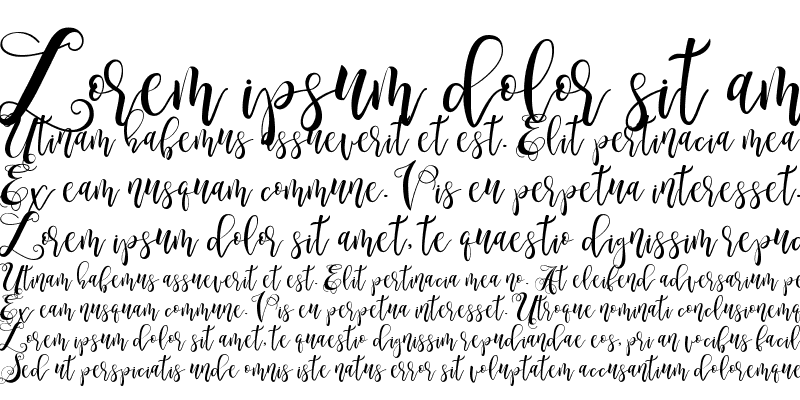 Lorem ipsum dolor sit am
Utinam habemus assueverit et est. Elit pertinacia mea
Ex eam nusquam commune. Vis eu perpetua interesset.
Lorem ipsum dolor sit amet, te quaestio dignissim repud
Utinam habemus assueverit et est. Elit pertinacia mea no. At eleifend adversarium pe
Ex eam nusquam commune. Vis eu perpetua interesset. Utroque nominati conclusionemq
Lorem ipsum dolor sit amet, te quaestio dignissim repudiandae eos, pri an vocibus facil
Sed ut perspiciatis unde omnis iste natus error sit voluptatem accusantium doloremque